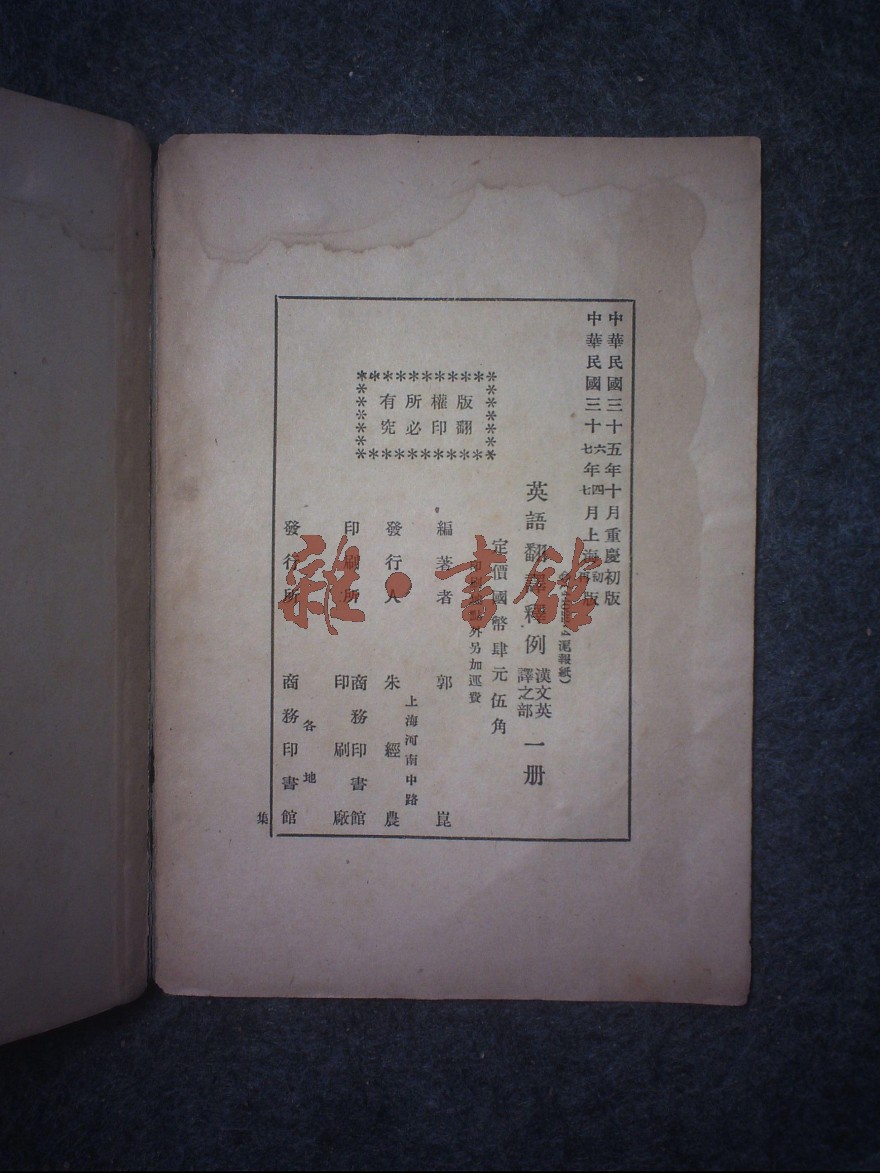 中華民國三十五年十月重慶初版
中華民國三十六年四月上海初版
七 七 再
滬報紙)
英語翻譯釋例 漢文英譯之部 一册
定價國幣肆元伍角
印刷地點外另加運費
版權所有
翻印必究
編著者 郭崑
上海河南中路
發行人 朱經農
印刷所 商務印書館
印刷廠
各地
發行所 商務印書館
集
雜·書館